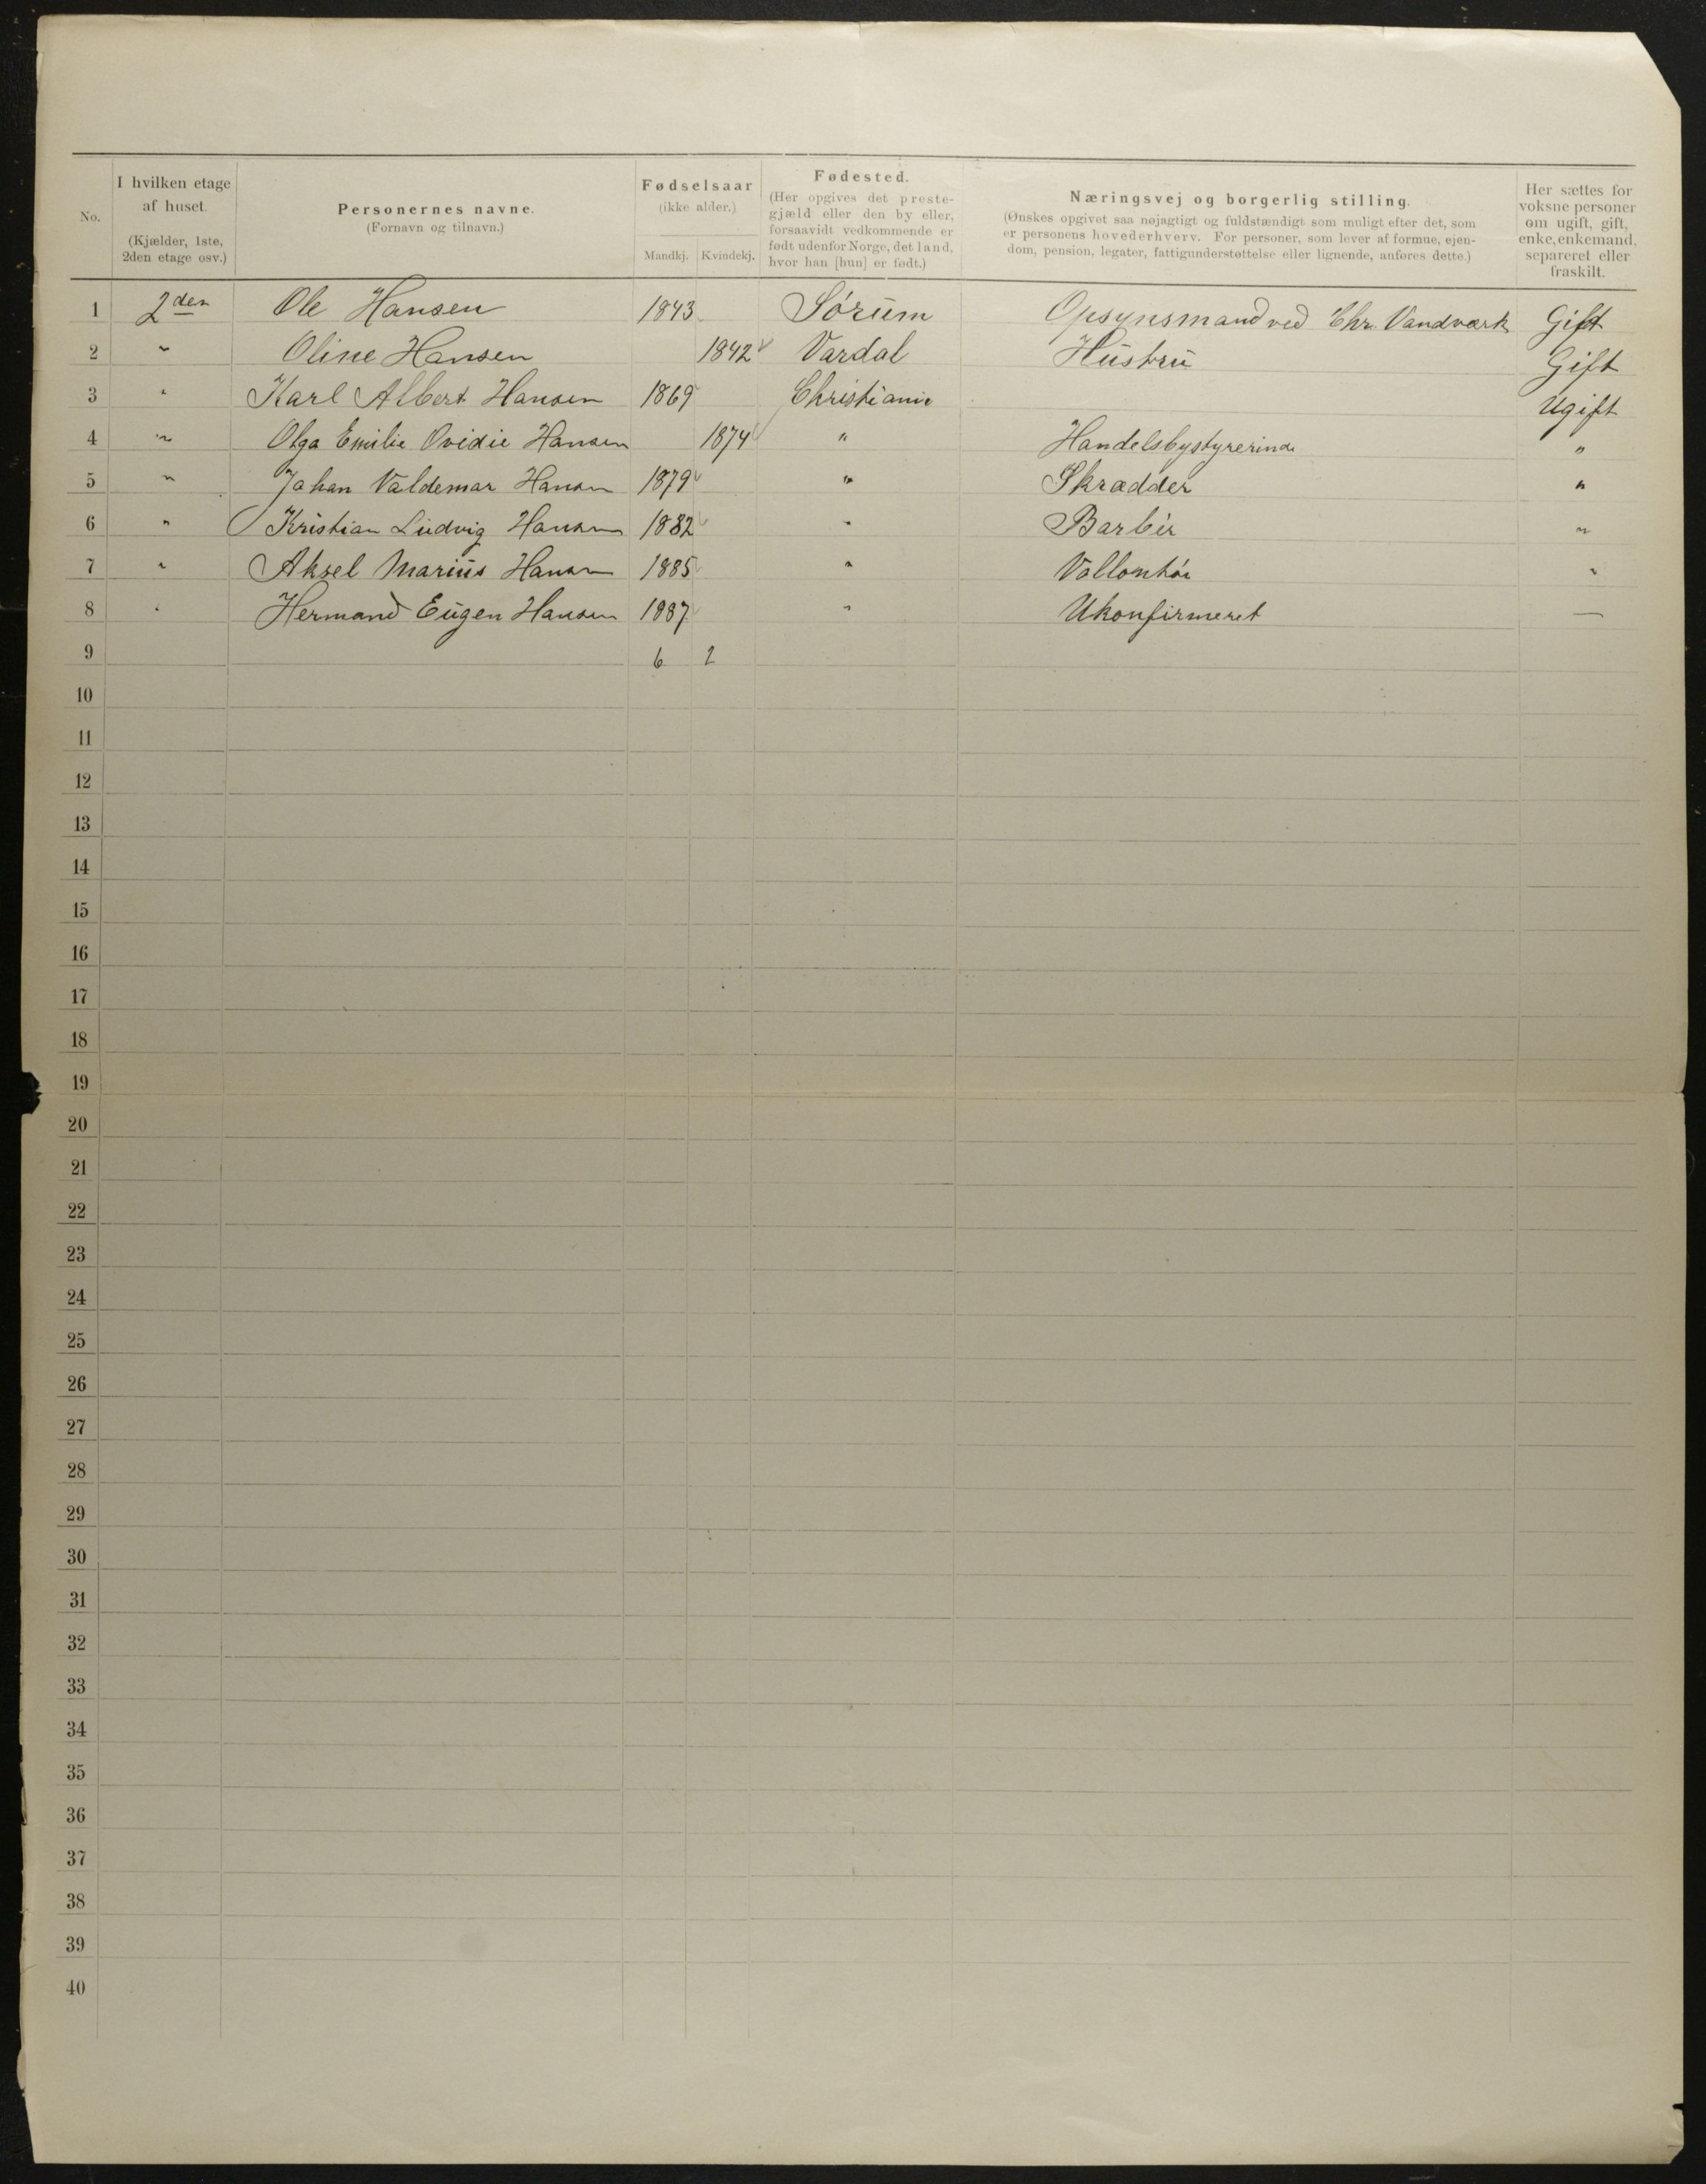 No.
I hvilken etage af huset.
(Kjælder, 1ste, 2den etage osv.)
Personernes navne.
(Fornavn og tilnavn.)
Fødselsaar
(ikke alder.)
Mandkj. Kvindekj.
Fødested.
(Her opgives det preste-
gjæld eller den by eller,
forsaavidt vedkommende er
født udenfor Norge, det land,
hvor han [hun] er født.)
Næringsvej og borgerlig stilling.
(Ønskes opgivet saa nøjagtigt og fuldstændigt som muligt efter det, som
er personens hovederhverv. For personer, som lever af formue, ejen-
dom, pension, legater, fattigunderstøttelse eller lignende, anføres dette.)
Her sættes for
voksne personer
om ugift, gift,
enke, enkemand,
separeret eller
fraskilt.
1 2den Ole Hansen 1843 Sórum Opsynsmand ved Chr. Vandværk Gift
2 " Oline Hansen 1842 Vardal Hustru Gift
3 " Karl Albert Hansen 1869 Christiania Ugift
4 " Olga Emilie Ovidie Hansen 1874 " Handelsbystyrerinde "
5 " Johan Valdemar Hansen 1879 " Skrædder "
6 " Kristian Ludvig Hansen 1882 " Barbér "
7 " Aksel Marius Hansen 1885 " "
8 " Hermand Eugen Hansen 1887 " Ukonfirmeret —
9 6 2
10
11
12
13
14
15
16
17
18
19
20
21
22
23
24
25
26
27
28
29
30
31
32
33
34
35
36
37
38
39
40